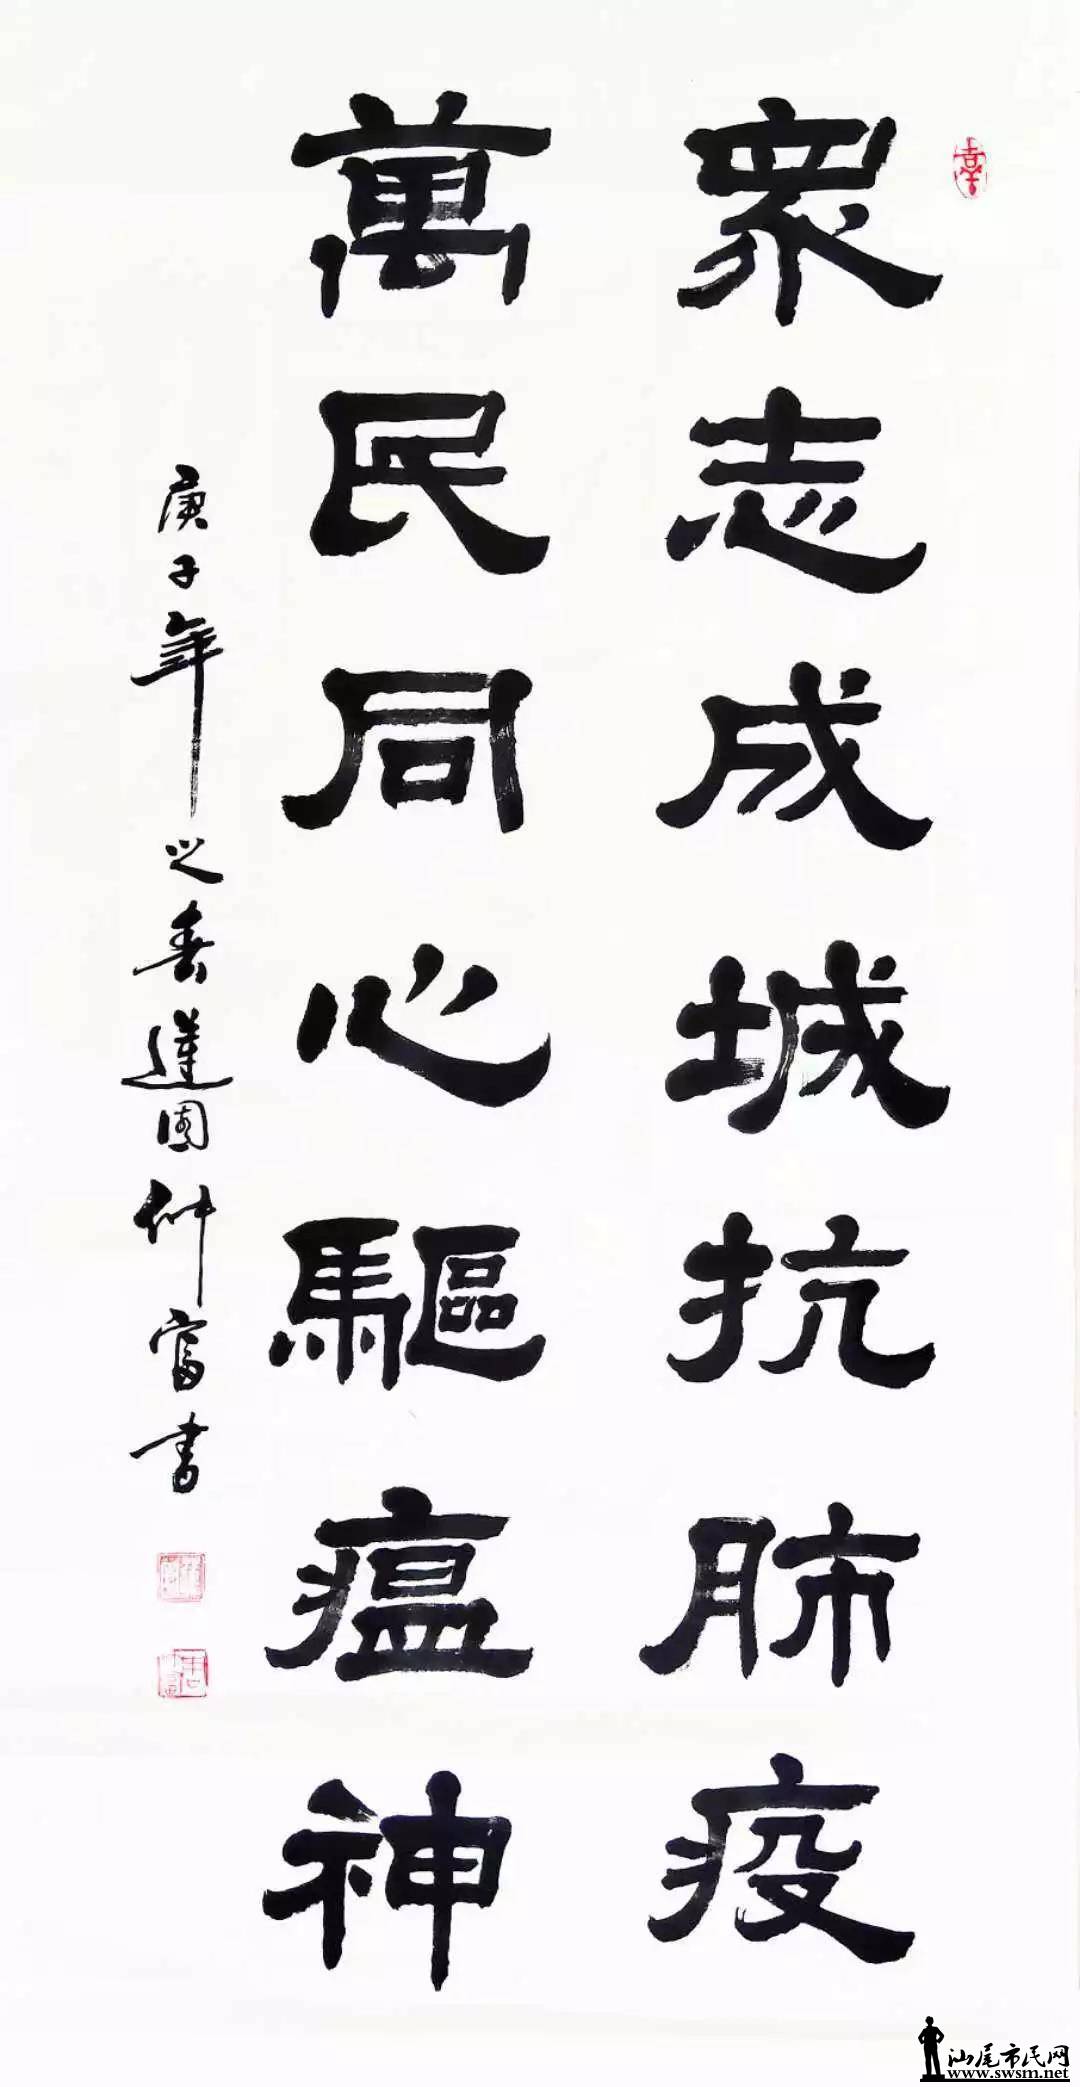 衆志成城抗肺疫
萬民同心驅瘟神
庚子年之春蓮園仲富書
汕尾市民网
www.swsm.net